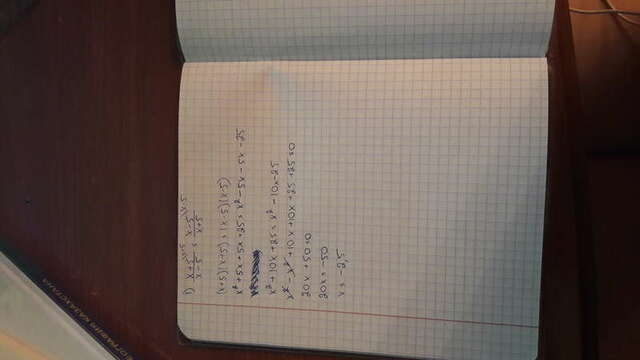 1) x+5/x-5 = x-5/x+5
(x+5)(x+5) = (x-5)(x-5)
x² + 5x + 5x + 25 = x² - 5x - 5x - 25
x² + 10x + 25 = x² - 10x - 25
x² - x² + 10x + 10x + 25 + 25 = 0
20x + 50 = 0
20x = -50
x = -2,5